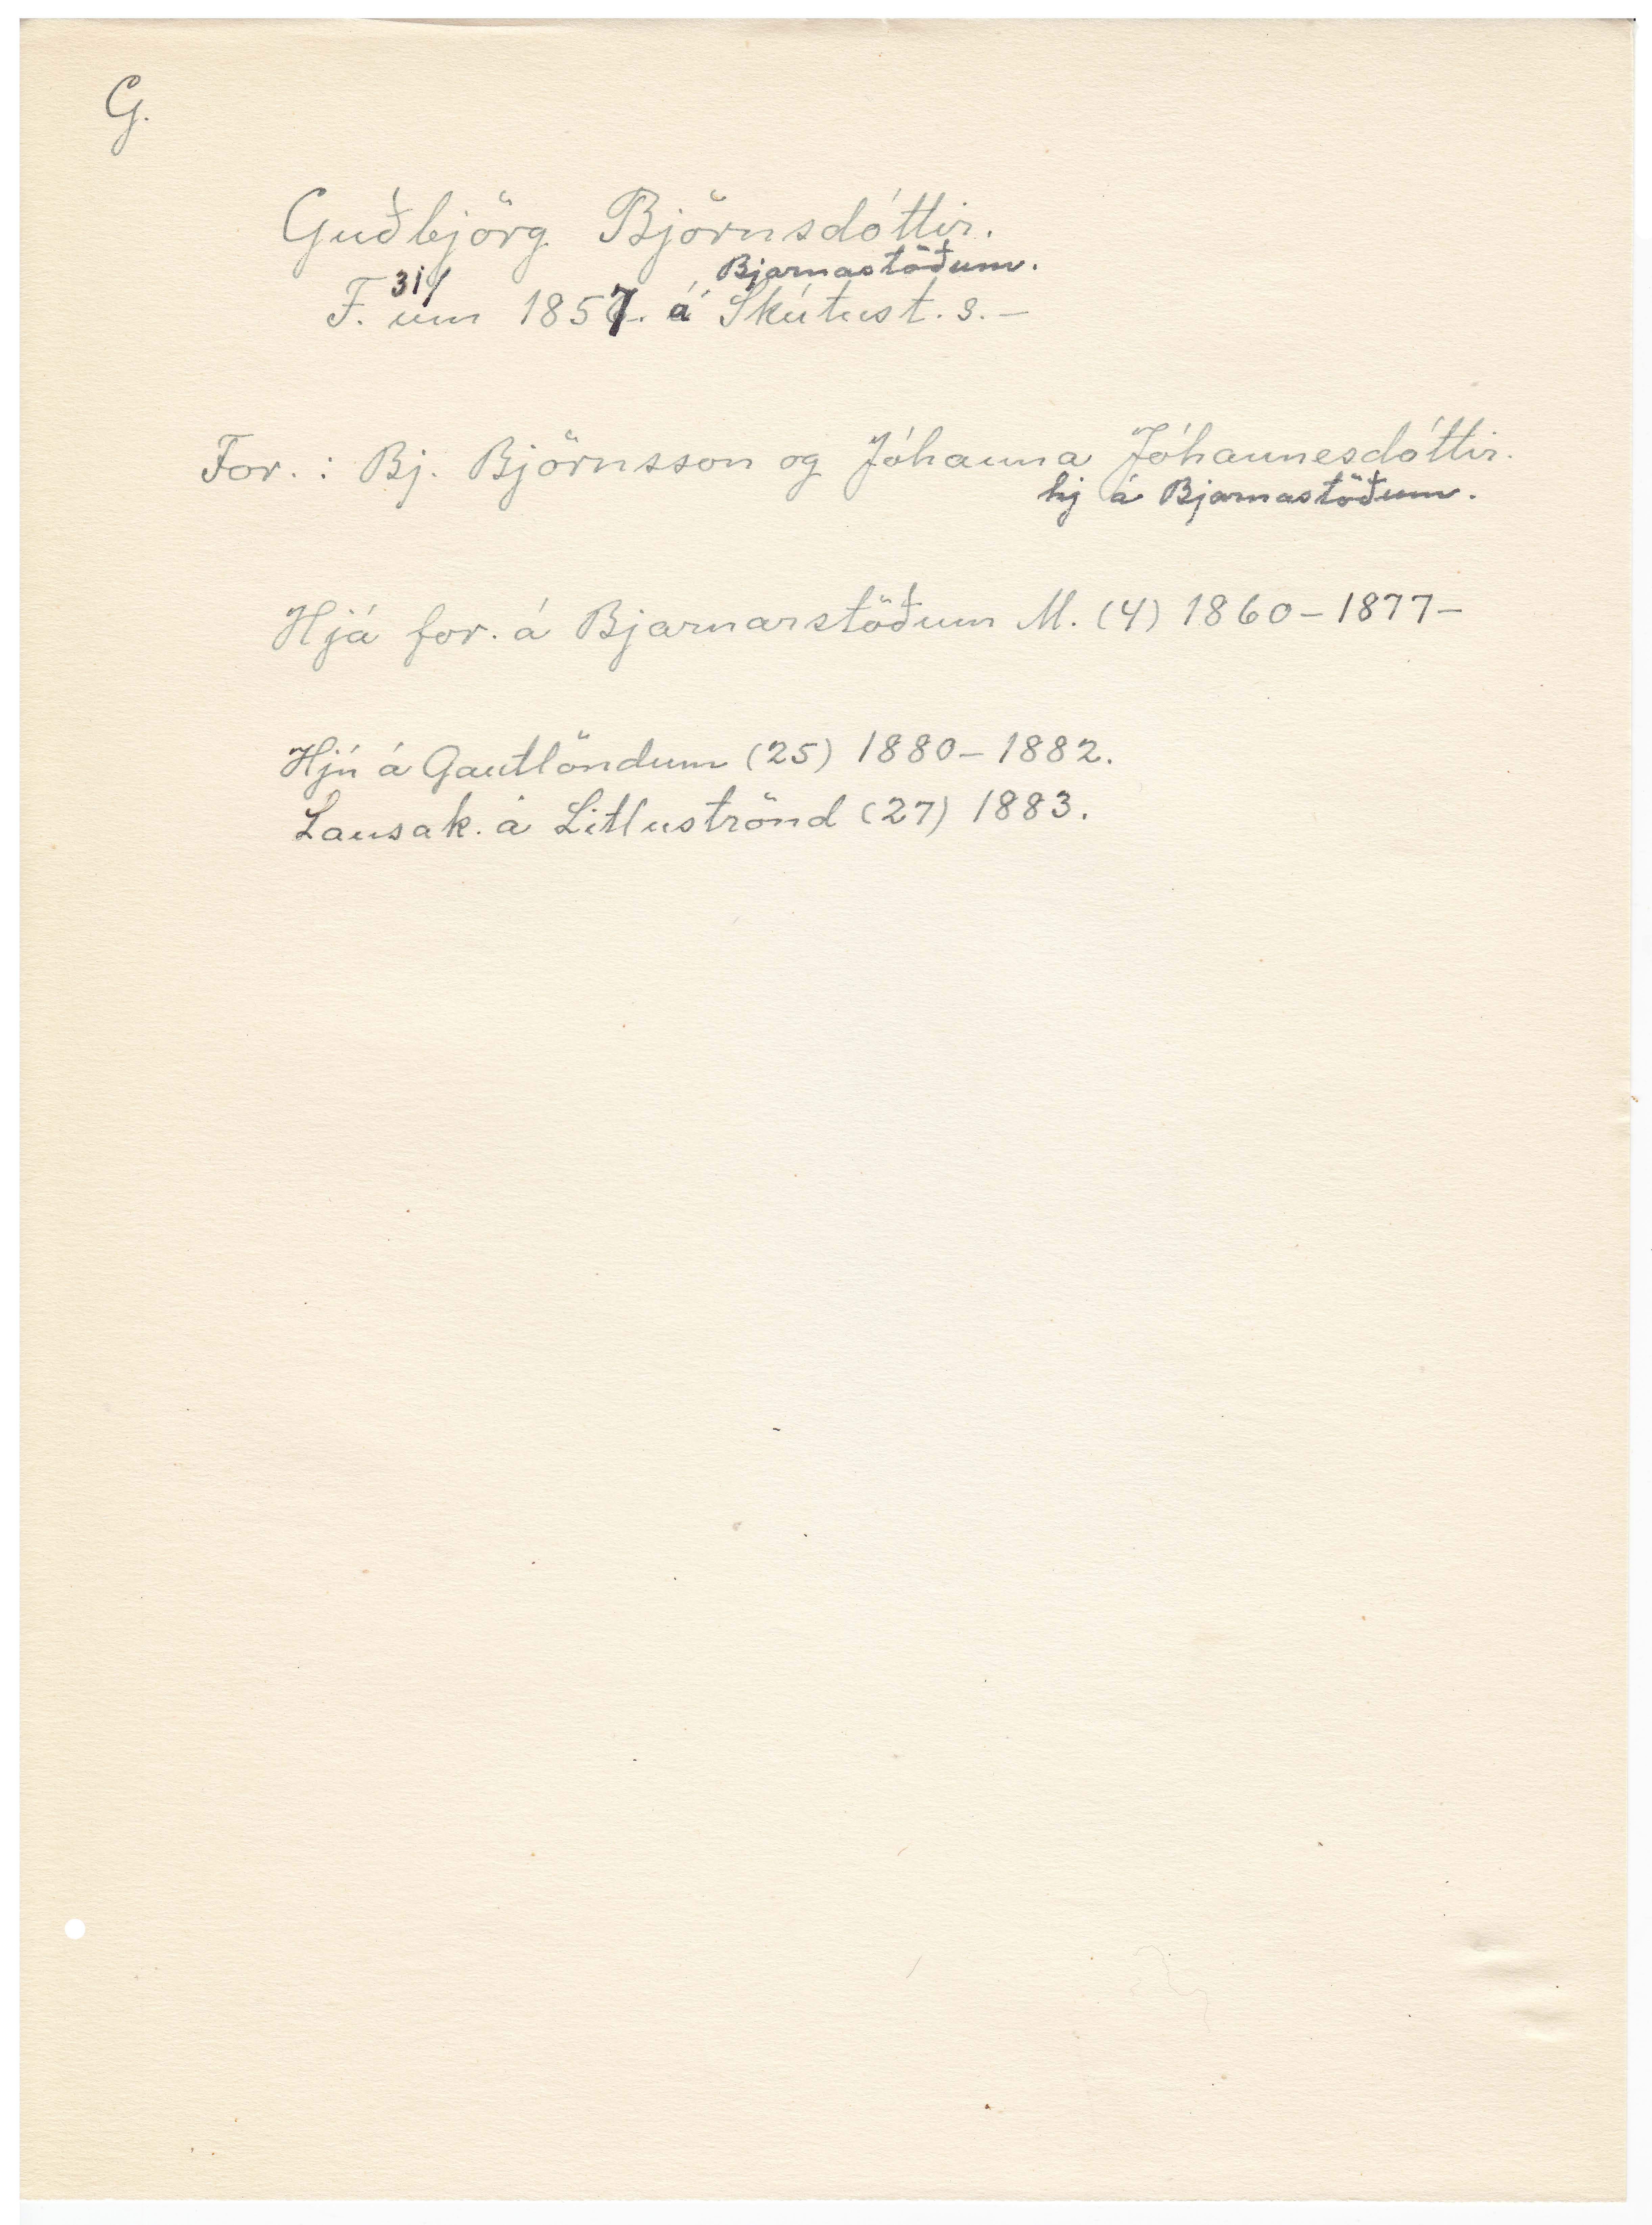 G.
Guðbjörg Björnsdóttir.
Bjarnastöðum.
F. um 1857. á Skútust. s. –
For. : Bj. Björnsson og Jóhanna Jóhannesdóttir.
hj á Bjarnastöðum.
Hjá for. á Bjarnarstöðum M. (4) 1860 – 1877 –
Hjú á Gautlöndum (25) 1880 – 1882.
Lausak. á Litluströnd (27) 1883.